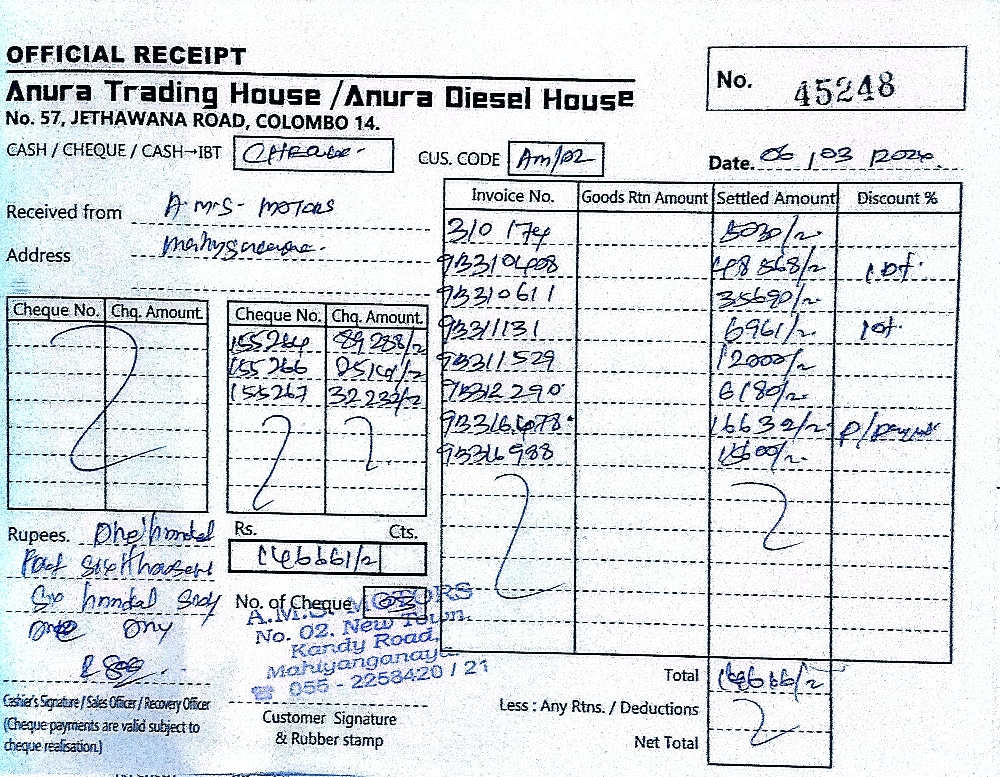 OFFICIAL RECEIPT
Anura Trading House / Anura Diesel House
No. 57, JETHAWANA ROAD, COLOMBO 14.
No. 45248
CASH / CHEQUE / CASH→IBT Cheque-
CUS. CODE Am/02
Date. 06 / 03 / 2024.
Received from A M S - MOTORS
Address
Invoice No. Goods Rtn Amount Settled Amount Discount %
310 174 5030/=
93310408 48568/=
93310611 35690/=
93311131 6961/=
93311529 12000/=
93312290 6180/=
93316678
93316988
Cheque No. Chq. Amount.
Cheque No. Chq. Amount.
155264 89288/=
155266
155267 32232/=
Rupees. One hundred
Six hundred Sixty
One Only
Rs. Cts.
146661/=
No. of Cheque 03
A.M.S. MOTORS
No. 02. New Town.
Kandy Road,
Mahiyanganaya
☎ 055 - 2258420 / 21
Cashier's Signature / Sales Officer / Recovery Officer
(Cheque payments are valid subject to
cheque realisation.)
Customer Signature
& Rubber stamp
Total
Less : Any Rtns. / Deductions
Net Total